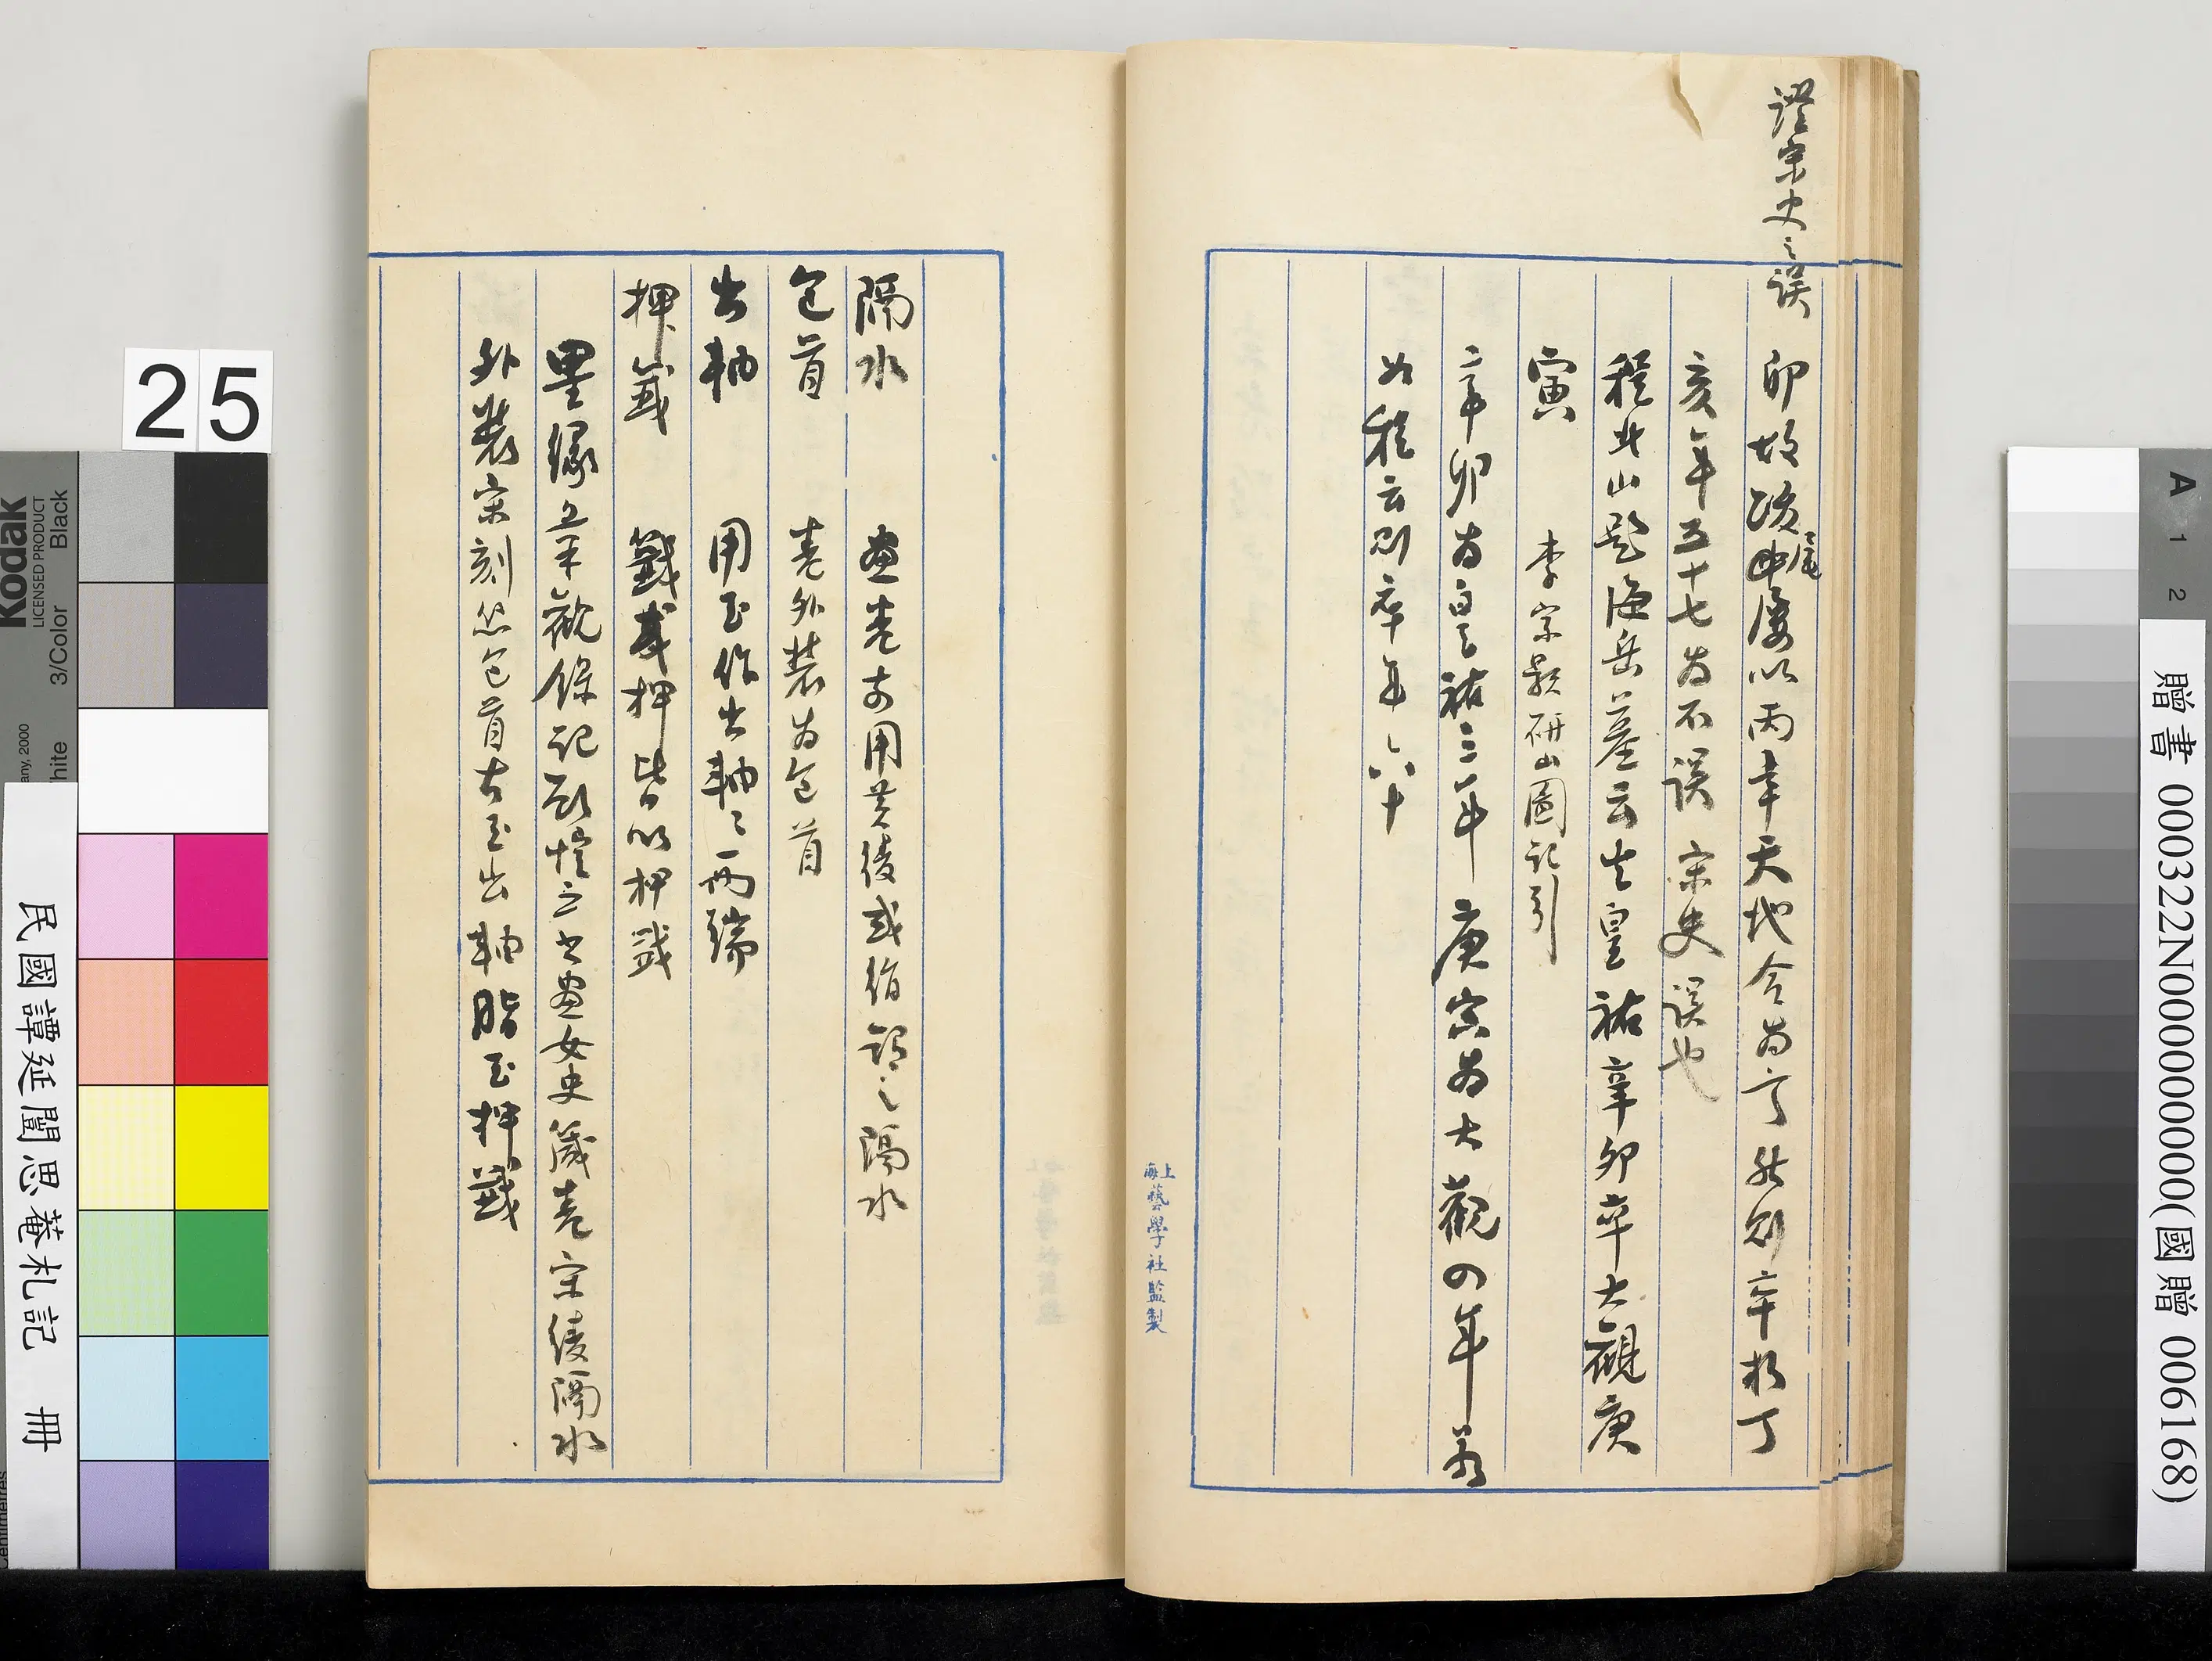 證宋史之誤
卯故跋尾屢以丙辛天地合為言然則卒於丁
亥年五十七為不誤宋史誤也
程北山題海岳墓云生皇祐辛卯卒大觀庚
寅 李宗顥研山圖記引
辛卯為皇祐三年 庚寅為大觀四年 若
如程云則卒年六十
上海藝學社監製
隔水 畫卷前用黃綾或絹謂之隔水
包首 卷外裝為包首
出軸 用玉作出軸之兩端
押籤 籤或押皆以押籤
墨緣彙觀錄記顧愷之畫女史箴卷宋綾隔水
外裝宋刻絲包首古玉出軸脂玉押籤
25
Kodak
LICENSED PRODUCT
Black
3/Color
White
民國譚延闓思菴札記 冊
A 1 2
贈書 000322N000000000(國贈 006168)